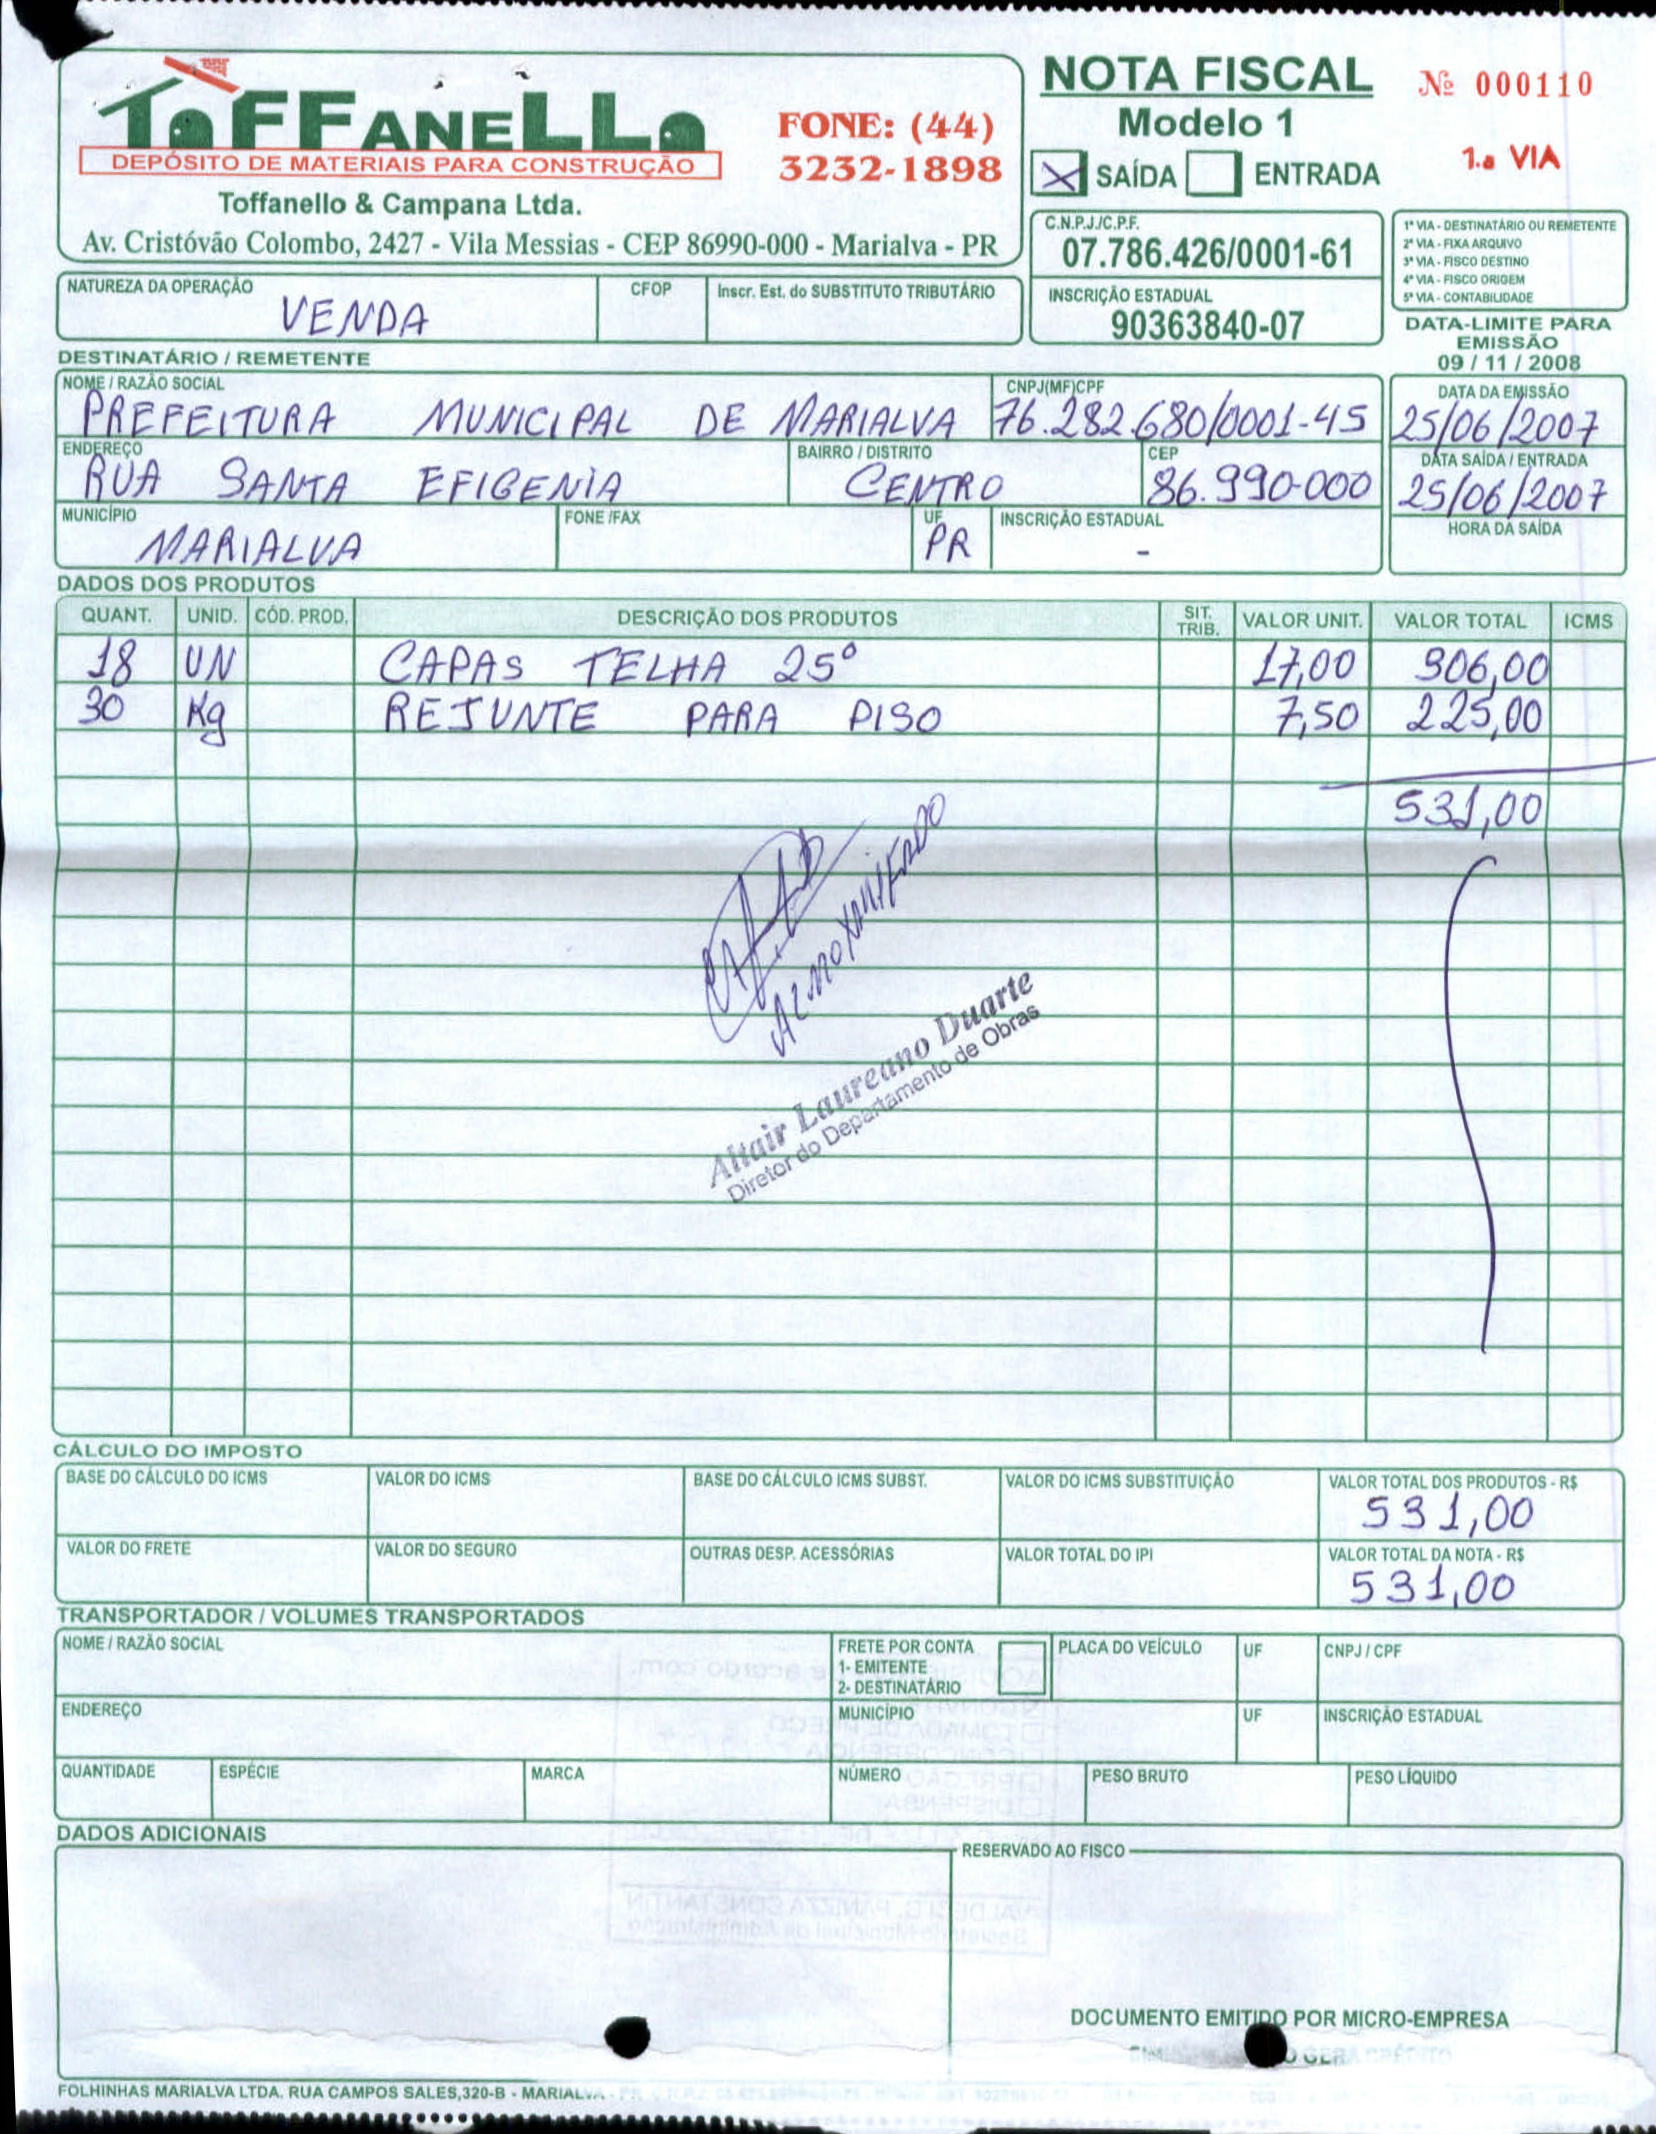 ToFFANELLo
DEPÓSITO DE MATERIAIS PARA CONSTRUÇÃO
FONE: (44)
3232-1898
Toffanello & Campana Ltda.
Av. Cristóvão Colombo, 2427 - Vila Messias - CEP 86990-000 - Marialva - PR
NOTA FISCAL
Modelo 1
Nº 000110
1.a VIA
X SAÍDA ENTRADA
C.N.P.J./C.P.F.
07.786.426/0001-61
INSCRIÇÃO ESTADUAL
90363840-07
1ª VIA - DESTINATÁRIO OU REMETENTE
2ª VIA - FIXA ARQUIVO
3ª VIA - FISCO DESTINO
4ª VIA - FISCO ORIGEM
5ª VIA - CONTABILIDADE
DATA-LIMITE PARA
EMISSÃO
09 / 11 / 2008
NATUREZA DA OPERAÇÃO CFOP Inscr. Est. do SUBSTITUTO TRIBUTÁRIO
VENDA
DESTINATÁRIO / REMETENTE
NOME / RAZÃO SOCIAL CNPJ(MF)CPF DATA DA EMISSÃO
PREFEITURA MUNICIPAL DE MARIALVA 76.282.680/0001-45 25/06/2007
ENDEREÇO BAIRRO / DISTRITO CEP DATA SAÍDA / ENTRADA
RUA SANTA EFIGENIA CENTRO 86.990-000 25/06/2007
MUNICÍPIO FONE /FAX UF INSCRIÇÃO ESTADUAL HORA DA SAÍDA
MARIALVA PR -
DADOS DOS PRODUTOS
QUANT. UNID. CÓD. PROD. DESCRIÇÃO DOS PRODUTOS SIT. TRIB. VALOR UNIT. VALOR TOTAL ICMS
18 UN CAPAS TELHA 25º 17,00 306,00
30 Kg REJUNTE PARA PISO 7,50 225,00
531,00
ALMOXARIFADO
Altair Laureano Duarte
Diretor do Departamento de Obras
CÁLCULO DO IMPOSTO
BASE DO CÁLCULO DO ICMS VALOR DO ICMS BASE DO CÁLCULO ICMS SUBST. VALOR DO ICMS SUBSTITUIÇÃO VALOR TOTAL DOS PRODUTOS - R$
531,00
VALOR DO FRETE VALOR DO SEGURO OUTRAS DESP. ACESSÓRIAS VALOR TOTAL DO IPI VALOR TOTAL DA NOTA - R$
531,00
TRANSPORTADOR / VOLUMES TRANSPORTADOS
NOME / RAZÃO SOCIAL FRETE POR CONTA PLACA DO VEÍCULO UF CNPJ / CPF
1- EMITENTE
2- DESTINATÁRIO
ENDEREÇO MUNICÍPIO UF INSCRIÇÃO ESTADUAL
QUANTIDADE ESPÉCIE MARCA NÚMERO PESO BRUTO PESO LÍQUIDO
DADOS ADICIONAIS
RESERVADO AO FISCO
DOCUMENTO EMITIDO POR MICRO-EMPRESA
GERA CRÉDITO
FOLHINHAS MARIALVA LTDA. RUA CAMPOS SALES,320-B - MARIALVA - PR